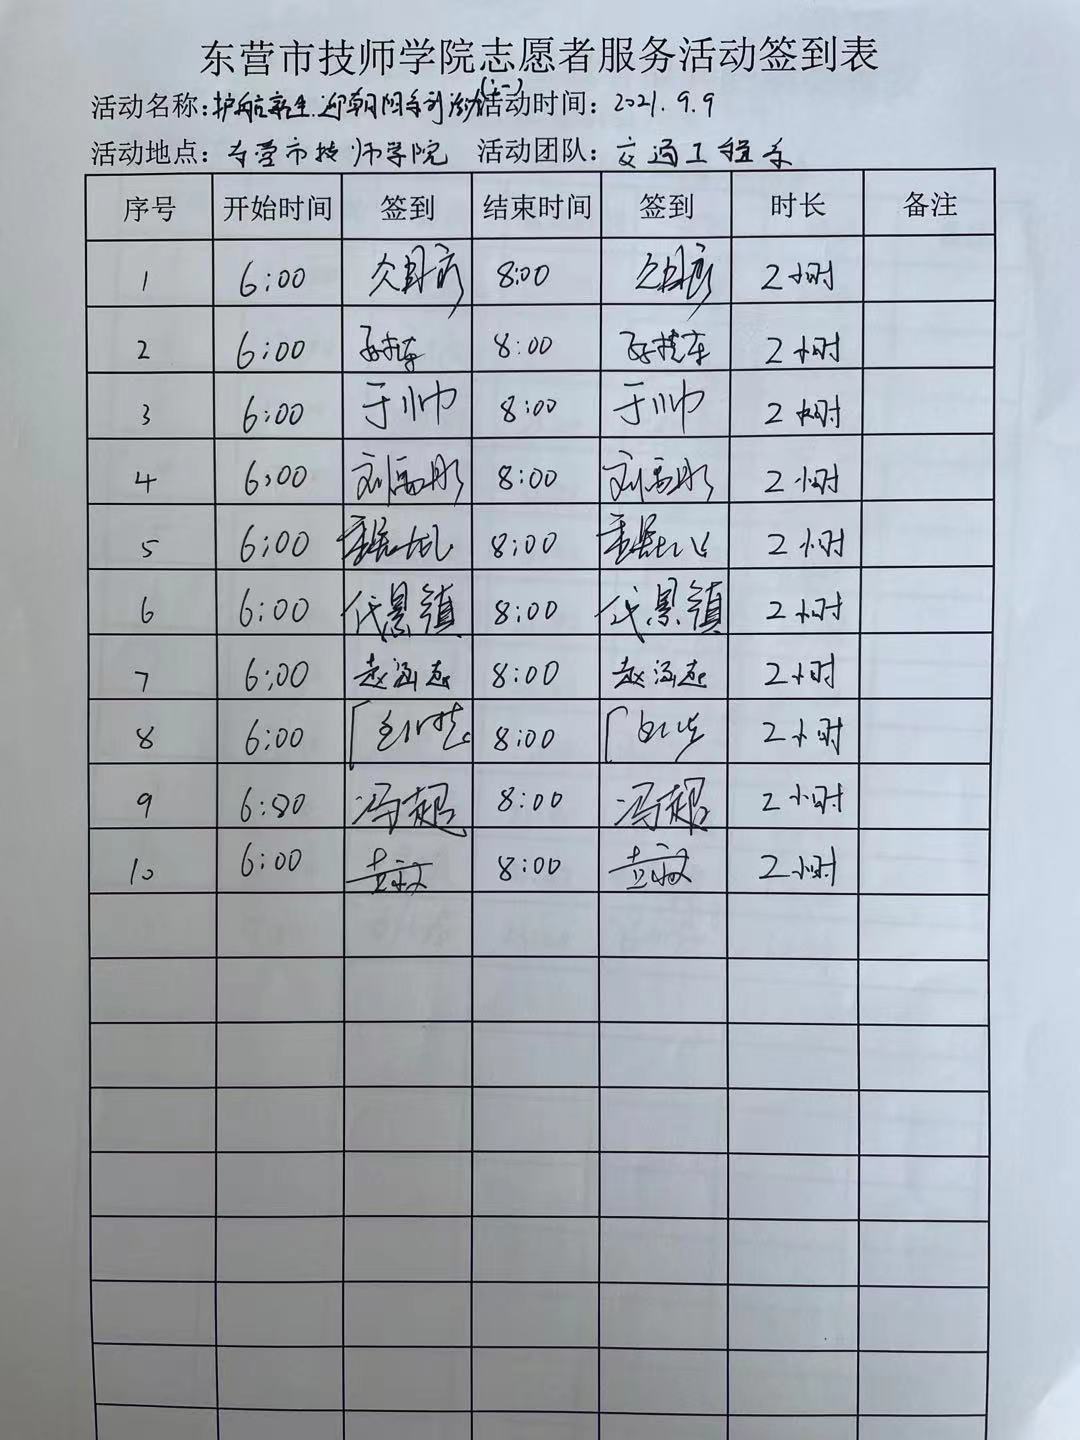 东营市技师学院志愿者服务活动签到表
活动名称:护航新生.迎朝阳系列活动(十一) 活动时间: 2021.9.9
活动地点: 东营市技师学院 活动团队: 交通工程系
序号 开始时间 签到 结束时间 签到 时长 备注
1 6:00 8:00 2小时
2 6:00 8:00 2小时
3 6:00 于帅 8:00 于帅 2小时
4 6:00 8:00 2小时
5 6:00 8:00 2小时
6 6:00 代景镇 8:00 代景镇 2小时
7 6:00 赵海超 8:00 赵海超 2小时
8 6:00 8:00 2小时
9 6:00 冯超 8:00 冯超 2小时
10 6:00 8:00 2小时